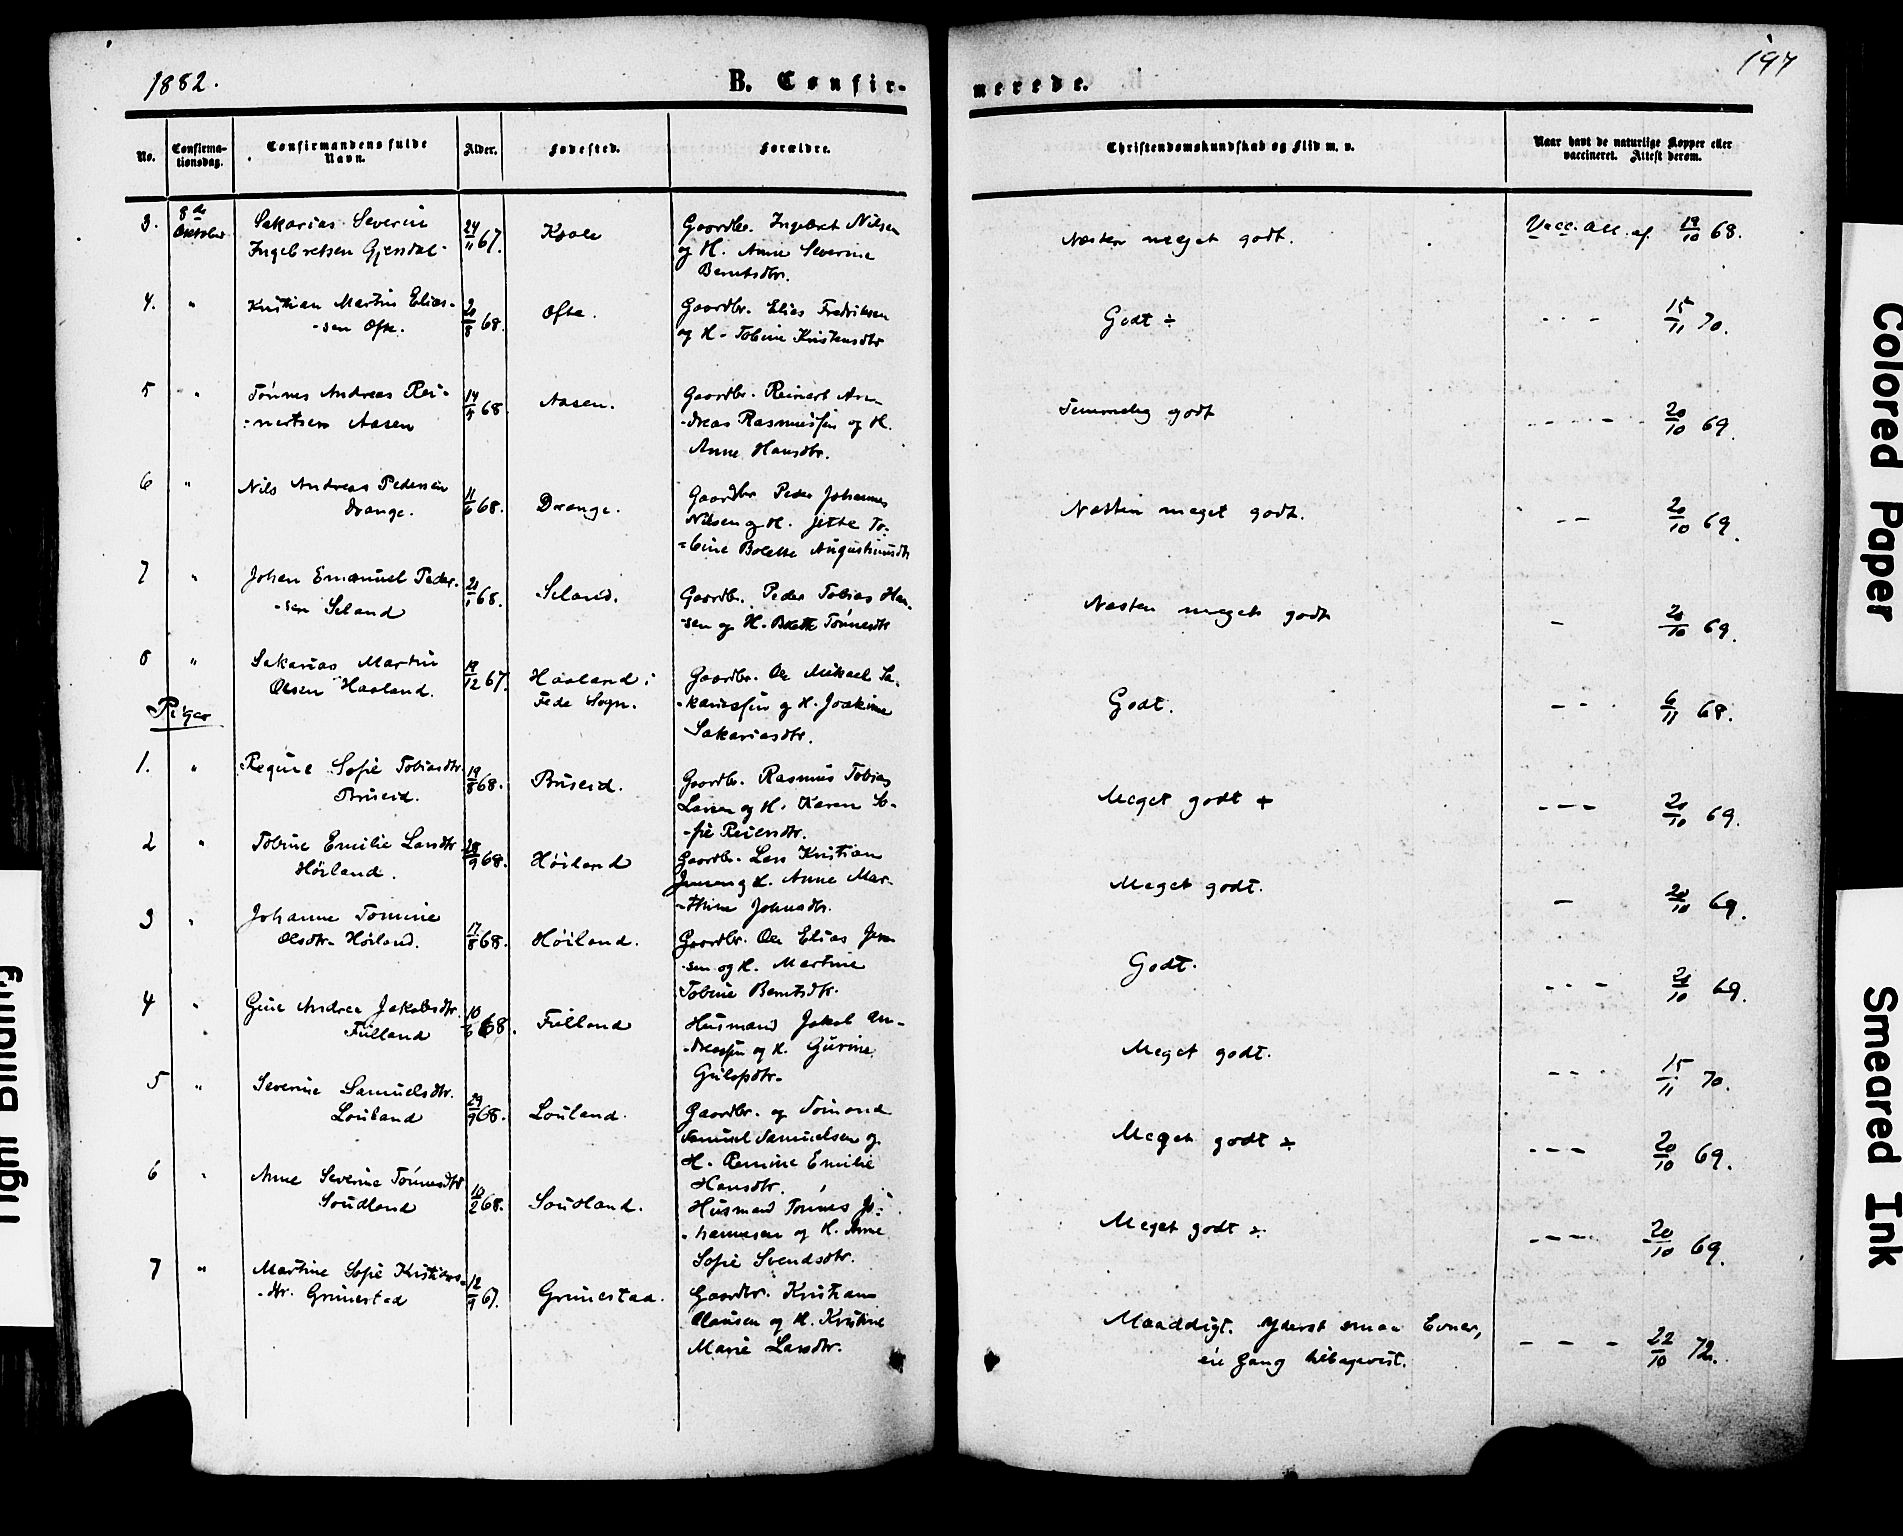 1882.
B. Confir-
merede.
197
No.
Confirma-
tionsdag.
Confirmandens fulde
Navn.
Alder.
Fødested.
Forældre.
Christendomskundskab og Flid m. v.
Naar havt de naturlige Kopper eller
vaccineret. Attest derom.
3. 8de Oktober
Sakarias Severin
Ingebretsen Gjendal
24/11 67.
Gaardbr. Ingebret Nilsen
og H. Anne Severine
Berntsdtr.
Næsten meget godt.
Vacc. att. af 19/10 68.
4. "
Kristian Martin Elias-
-sen Ofte.
20/8 68.
Ofte.
Gaardbr. Elias Fredriksen
og H. Tobine Kristensdtr
Godt ÷
- - - 15/11 70.
5 "
Tønnes Andreas Rei-
-nertsen Aasen
14/5 68
Aasen.
Gaardbr. Reinert An-
-dreas Rasmussen og H.
Anne Hansdtr.
Temmelig godt
20/10 69.
6 "
Nils Andreas Pedersen
Drange.
11/6 68.
Drange.
Gaardbr. Peder Johannes
Nilsen og H. Jette To-
-bine Bolette Augustinusdtr
Næsten meget godt.
- - 20/10 69.
7 "
Johan Emanuel Peder-
-sen Seland
68.
Seland.
Gaardbr. Peder Tobias Han-
-sen og H. Tønnesdtr
Næsten meget godt
- 20/10 69.
8 "
Sakarias Martin
Olsen Haaland.
19/12 67.
Haaland i
Feda Sogn.
Gaardbr. Ole Mikael Sa-
-kariassen og H. Joakime
Sakariasdtr.
Godt.
- - - 6/11 68.
Piger
1. "
Regine Sofie Tobiasdtr
Bruseid.
19/8 68.
Bruseid.
Gaardbr. Rasmus Tobias
Larsen og H. Karen So-
-fie Reiersdtr.
Meget godt +
- - - 20/10 69.
2 "
Tobine Emilie Larsdtr
Höiland.
28/9 68.
Höiland
Gaardbr. Lars Kristian
Jensen og H. Anne Mar-
-thine Johnsdtr.
Meget godt.
- 20/10 69.
3 "
Johanne Tomine
Olsdtr. Höiland.
17/8 68.
Höiland.
Gaardbr. Ole Elias Jen-
-sen og H. Martine
Tobine Berntsdtr.
Godt.
- - - 20/10 69.
4 "
Gine Andrea Jakobsdtr.
Fuiland
10/6 68.
Fuiland
Husmand Jakob An-
-dreassen og H. Gurine
Meget godt.
- - - 15/11 70.
5 "
Severine Samuelsdtr.
Louland
29/9 68.
Louland.
Gaardbr. og Sömand
Samuel Samuelsen og
H. Emilie
Hansdtr.
Meget godt ÷
- - - 20/10 69.
6 "
Anne Severine Tønnesdtr
Soudland
10/2 68.
Soudland.
Husmand Tønnes Jo-
-hannesen og H. Anne
Sofie Svendsdtr.
Meget godt ÷
- - - 20/10 69.
7 "
Martine Sofie Kristians-
-dtr. Grunestad
12/9 67.
Grunestad.
Gaardbr. Kristian
Clausen og H. Kristine
Marie Larsdtr.
Maadeligt. Yderst smaa Evner,
én Gang tilbagevist.
- - - 22/10 72.
Colored Paper
Smeared Ink
Tight Binding